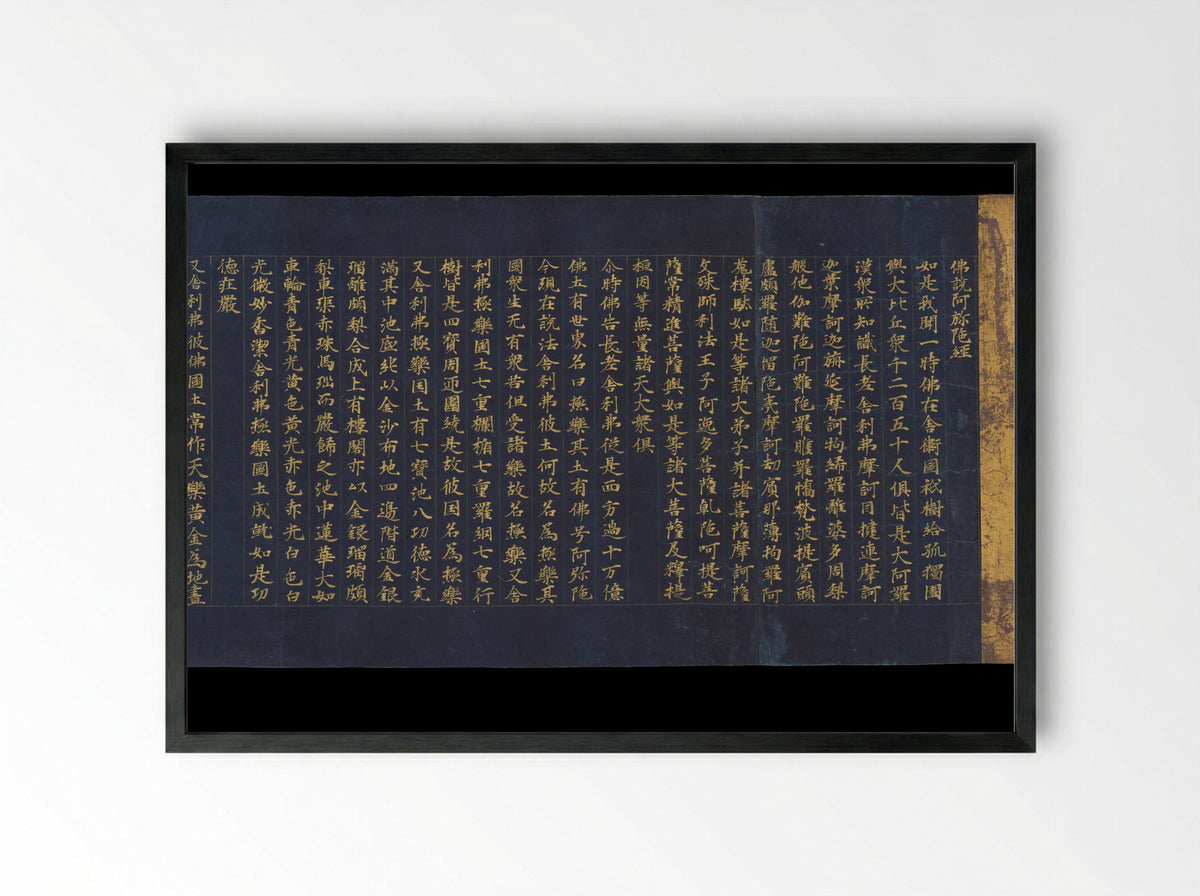 佛説阿弥陀經
如是我聞一時佛在舎衛國祇樹給孤獨園
與大比丘衆千二百五十人俱皆是大阿羅
漢衆所知識長老舎利弗摩訶目揵連摩訶
迦葉摩訶迦旃延摩訶拘絺羅離婆多周梨
般他伽難陀阿難陀羅睺羅憍梵波提賓頭
盧頗羅随迦留陀夷摩訶劫賓那薄拘羅阿
㝹樓駄如是等諸大弟子并諸菩薩摩訶薩
文殊師利法王子阿逸多菩薩乹陀呵提菩
薩常精進菩薩與如是等諸大菩薩及釋提
桓因等無量諸天大衆俱
尒時佛告長老舎利弗従是西方過十万億
佛土有世界名曰極樂其土有佛号阿弥陀
今現在説法舎利弗彼土何故名為極樂其
國衆生无有衆苦但受諸樂故名極樂又舎
利弗極樂國土七重欄楯七重羅網七重行
樹皆是四寶周迊圍繞是故彼国名為極樂
又舎利弗極樂国土有七寶池八功德水充
滿其中池底純以金沙布地四邊階道金銀
瑠璃頗梨合成上有樓閣亦以金銀瑠璃頗
梨車璖赤珠馬瑙而嚴飾之池中蓮華大如
車輪青色青光黄色黄光赤色赤光白色白
光微妙香潔舎利弗極樂國土成就如是功
德庄嚴
又舎利弗彼佛國土常作天樂黄金為地晝